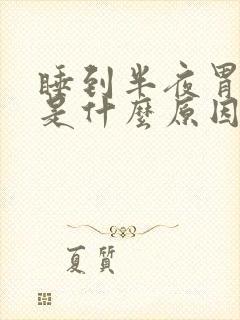 睡到半夜胃
是什麼原因
夏質